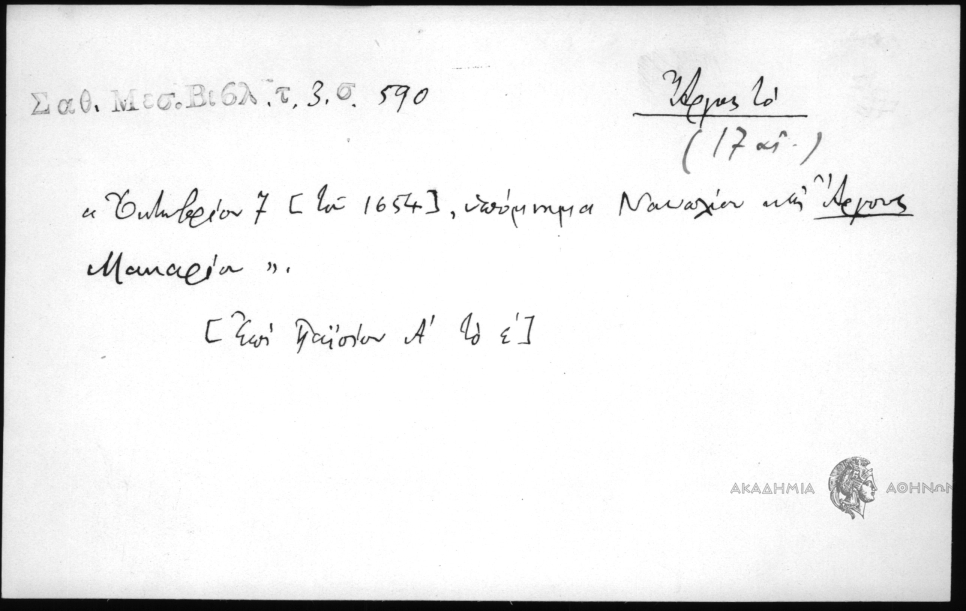 Σαθ. Μεσ. Βιβλ. τ. 3. σ. 590
Ἄργος τό
(17 αἰ.)
« Ὀκτωβρίου 7 [τοῦ 1654], ὑπόμνημα Ναυπλίου καὶ Ἄργους
Μακαρίου ».
[Ἐπὶ Παϊσίου Α' τὸ ε']
ΑΚΑΔΗΜΙΑ ΑΘΗΝΩΝ